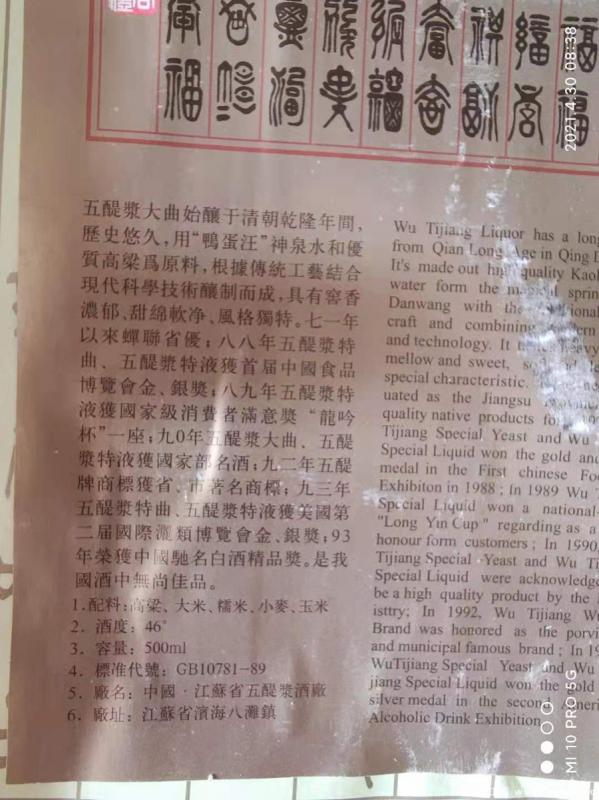 五醍漿大曲始釀于清朝乾隆年間，
歷史悠久，用“鴨蛋汪”神泉水和優
質高粱爲原料，根據傳統工藝結合
現代科學技術釀制而成，具有窖香
濃郁、甜綿軟净、風格獨特。七一年
以來蟬聯省優；八八年五醍漿特
曲、五醍漿特液獲首届中國食品
博覽會金、銀獎；八九年五醍漿特
液獲國家級消費者滿意獎“龍吟
杯”一座；九0年五醍漿大曲、五醍
漿特液獲國家部名酒；九二年五醍
牌商標獲省、市著名商標；九三年
五醍漿特曲、五醍漿特液獲美國第
二届國際 類博覽會金、銀獎；93
年榮獲中國馳名白酒精品獎。是我
國酒中無尚佳品。
1.配料：高粱、大米、糯米、小麥、玉米
2．酒度：46°
3．容量：500ml
4．標准代號：GB10781-89
5．廠名：中國·江蘇省五醍漿酒廠
6．廠址：江蘇省濱海八灘鎮
Wu Tijiang Liquor has a long
from Qian Long Age in Qing D
It's made out high quality Kaol
water form the magical sprin
Danwang with the
craft and combining
and technology. It
mellow and sweet,
special characteristic.
uated as the Jiangsu
quality native products for
Tijiang Special Yeast and Wu
Special Liquid won the gold and
medal in the First chinese Foo
Exhibiton in 1988 ; In 1989 Wu T
Special Liquid won a national-
"Long Yin Cup" regarding as a
honour form customers ; In 1990,
Tijiang Special Yeast and Wu Ti
Special Liquid were acknowledge
be a high quality product by the
isttry; In 1992, Wu Tijiang Wu
Brand was honored as the porvi
and municipal famous brand ; In 19
WuTijiang Special Yeast and Wu
jiang Special Liquid won the gold
silver medal in the second Ameri
Alcoholic Drink Exhibition
2021.4.30 08:38
MI 10 PRO 5G